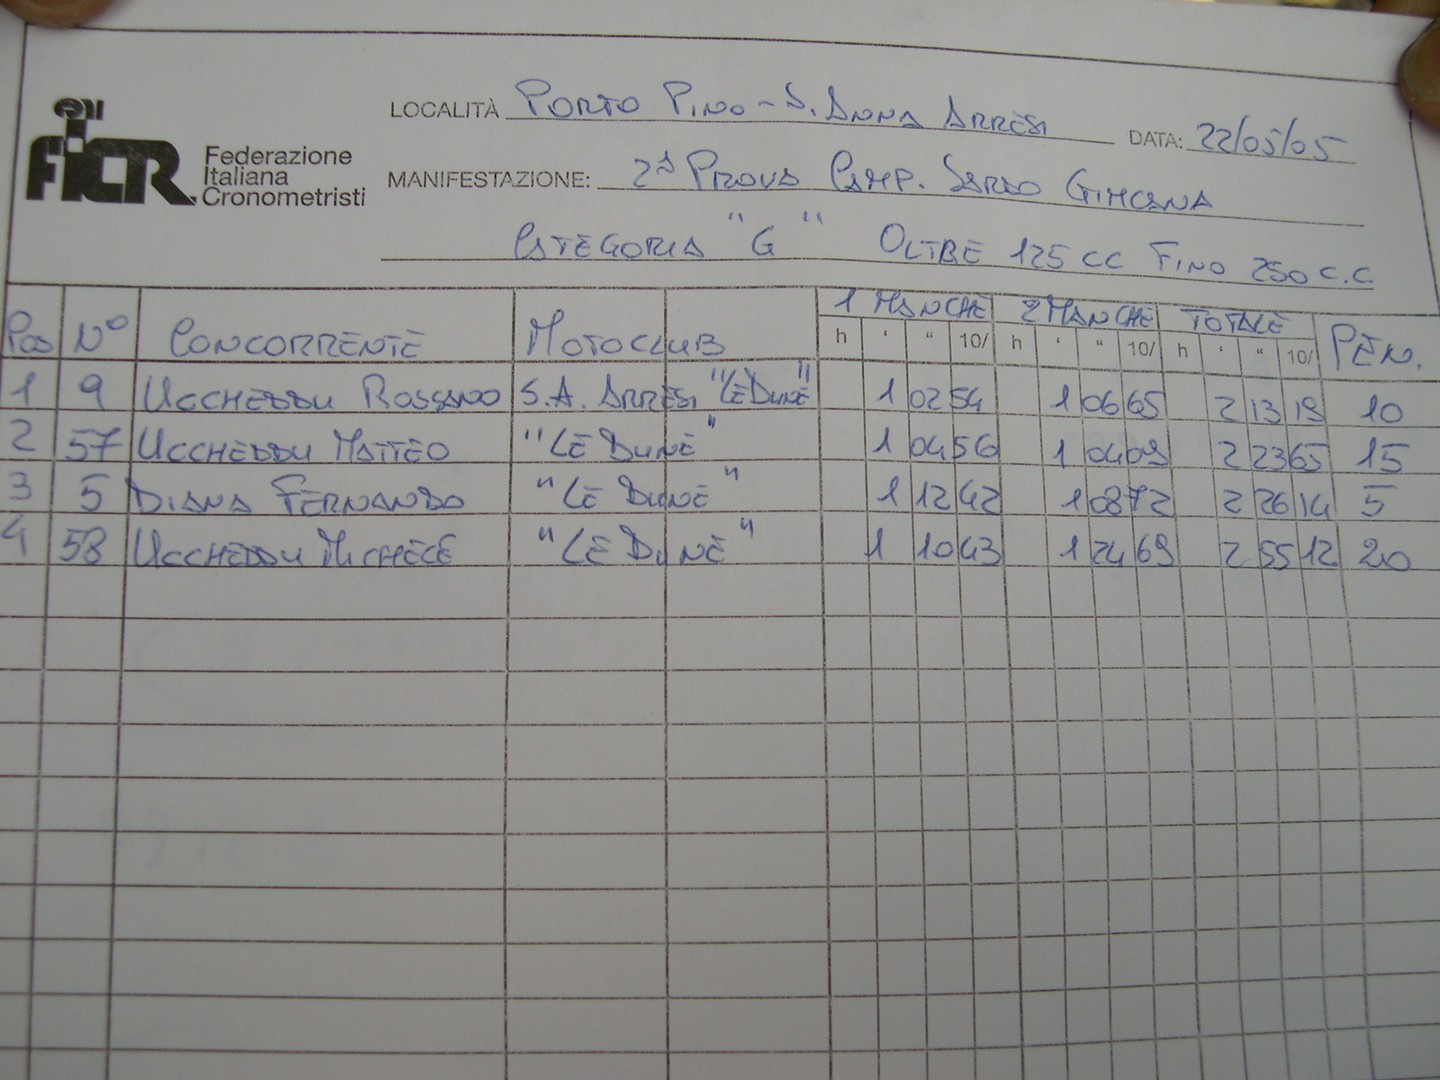 FICR Federazione Italiana Cronometristi
LOCALITÀ PORTO PINO - S. ANNA ARRESI DATA: 22/05/05
MANIFESTAZIONE: 2ª PROVA CAMP. SARDO GIMCANA
CATEGORIA "G" OLTRE 125 CC FINO 250 C.C.
1 MANCHE 2 MANCHE TOTALE
Pos N° CONCORRENTE MOTOCLUB h ' " 10/ h ' " 10/ h ' " 10/ PEN.
1 9 UCCHEDDU ROSSANO S.A. ARRESI "LE DUNE" 1 02 54 1 06 65 2 13 19 10
2 57 UCCHEDDU MATTEO "LE DUNE" 1 04 56 1 04 09 2 23 65 15
3 5 DIANA FERNANDO "LE DUNE" 1 12 42 1 08 72 2 26 14 5
4 58 UCCHEDDU MICHELE "LE DUNE" 1 10 43 1 24 69 2 55 12 20